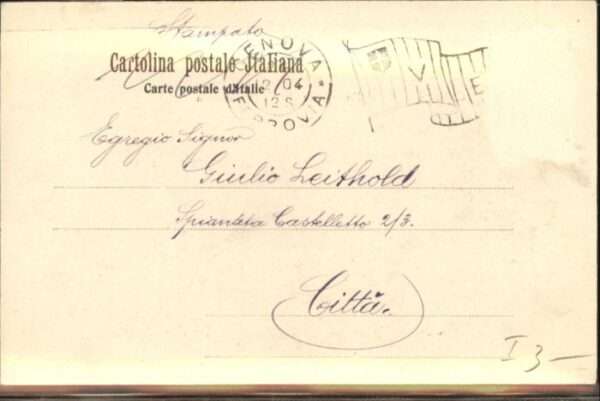 Stampato
Cartolina postale Italiana
Carte postale d'Italie
GENOVA
FERROVIA
2 04
12 S
V
E
Egregio Signor
Giulio Leithold
Spianata Castelletto 2/3.
Città.
I 3 —